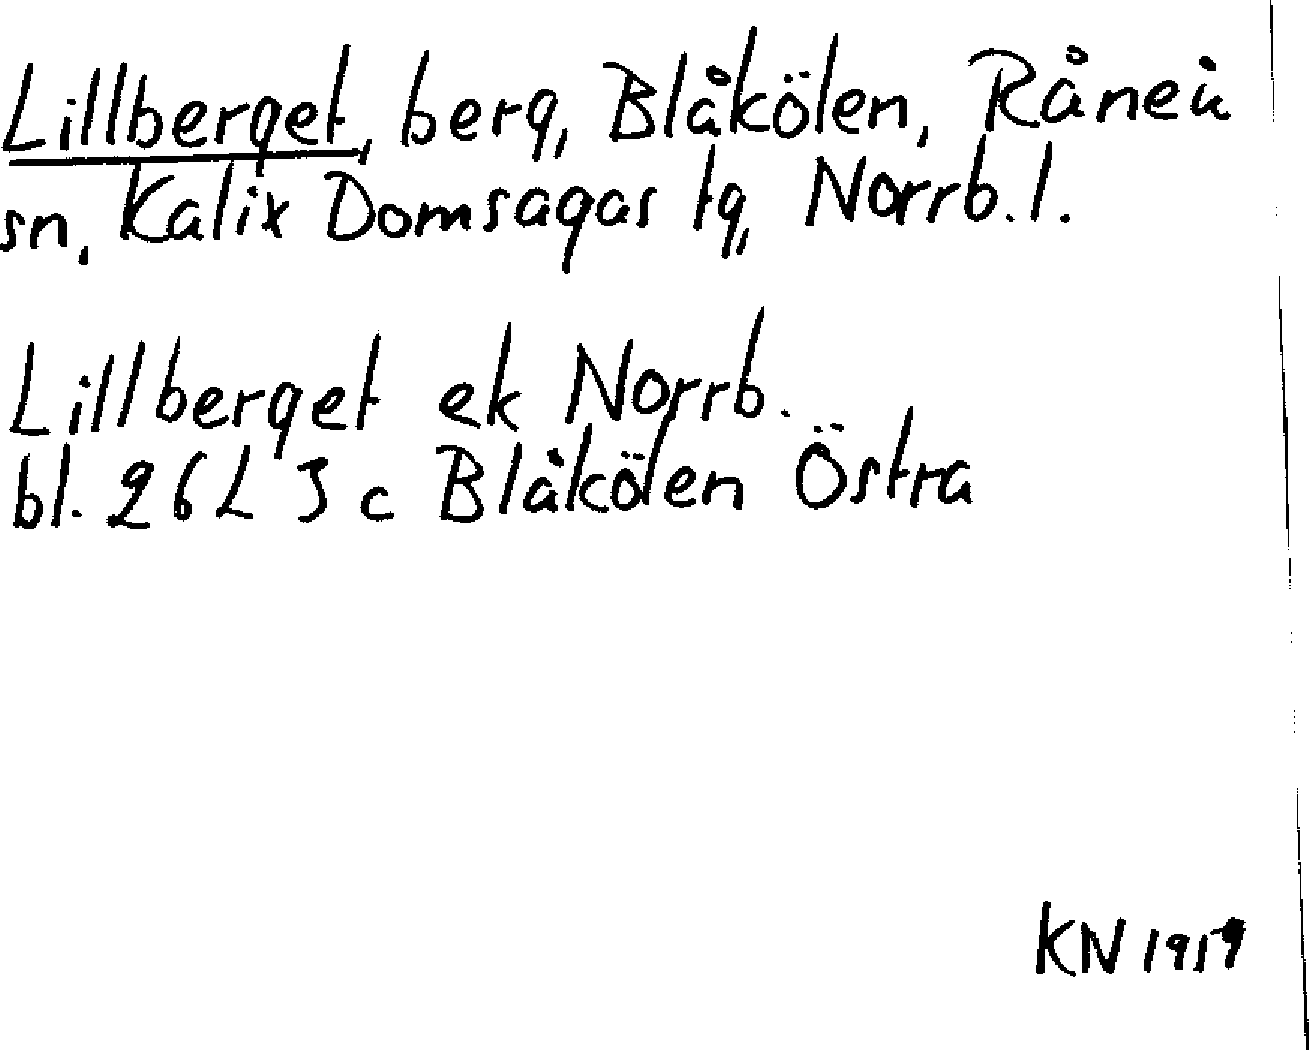 Lillberget, berg, Blåkölen, Råneå
sn, Kalix Domsagas tg, Norrb. l.
Lillberget ek Norrb.
bl. 26L 3c Blåkölen Östra
KN